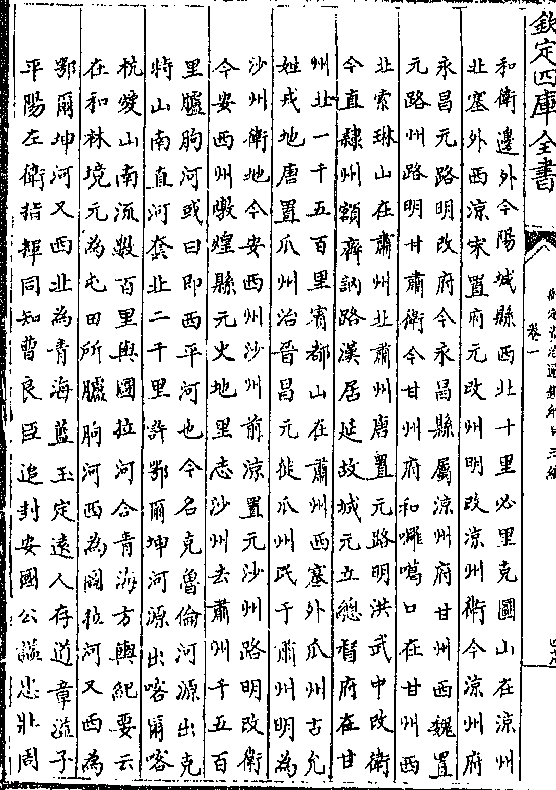 欽定四庫全書
卷一
和衛邊外今陽城縣西北十里必里克圖山在涼州
北塞外西涼宋置府元改州明改涼州衛今涼州府
永昌元路明改府今永昌縣屬涼州府甘州西魏置
元路州路明甘肅衛今甘州府和囉噶口在甘州西
北索琳山在肅州北肅州唐置元路明洪武中改衛
今直隸州額齊訥路漢居延故城元立總督府在甘
州北一千五百里賓都山在肅州西塞外瓜州古允
姓戎地唐置瓜州治晉昌元徙瓜州民于肅州明為
沙州衛地今安西州沙州前涼置元沙州路明改衛
今安西州燉煌縣元火地里志沙州去肅州千五百
里臚朐河或曰即西平河也今名克魯倫河源出克
特山南直河套北二千里許鄂爾坤河源出喀爾喀
杭愛山南流數百里與國拉河合青海方輿紀要云
在和林境元為屯田所臚朐河西為闊拉河又西為
鄂爾坤河又西北為青海藍玉定遠人存道章溢子
平陽左衛指揮同知曹良臣追封安國公諡忠壯周